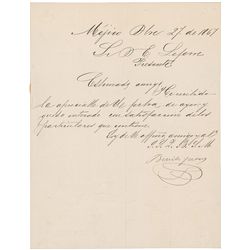 Méjico Dbre 27 de 1867
Sr D. E. Lefevre
Presente
Estimado amigo
He recibido
la apreciable de U. fecha de ayer y
quedo enterado con satisfaccion de los
particulares que contiene.
Soy de U. affmo amigo y
Q. B. S. M.
Benito Juarez